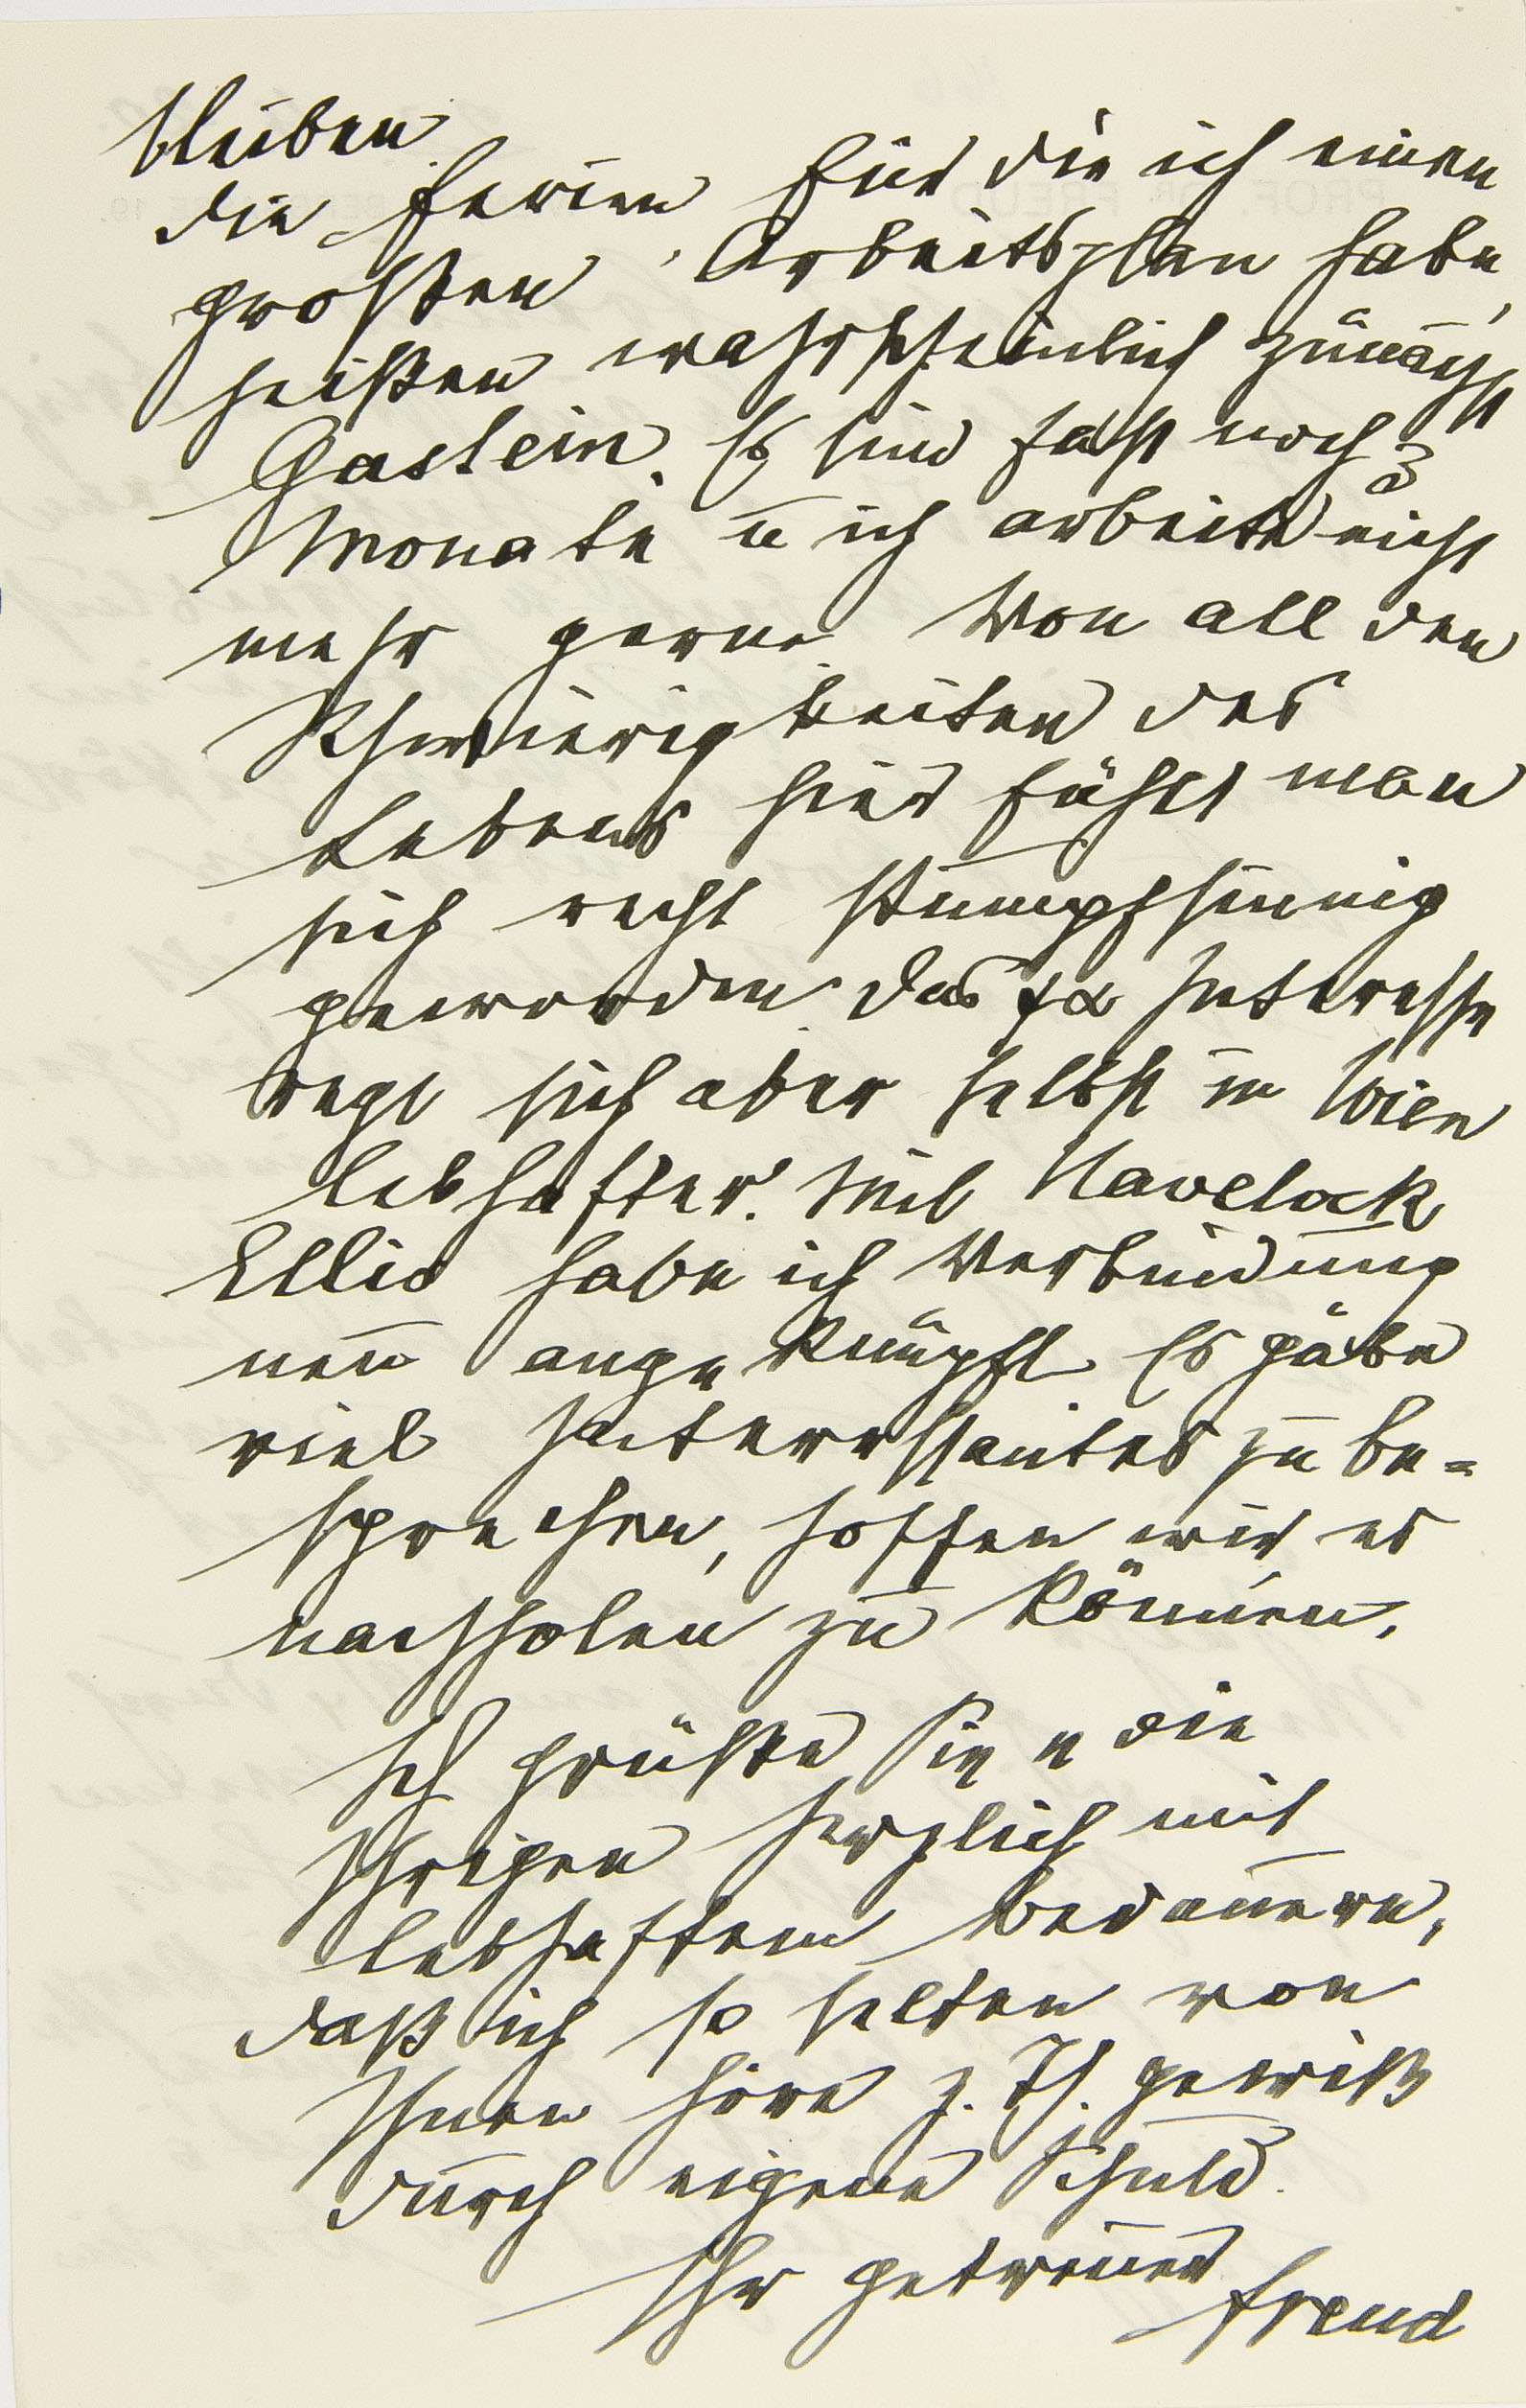 bleiben.
Die Ferien, für die ich einen
großen Arbeitsplan habe,
heißen wahrscheinlich zunächst
Gastein. Es sind fast noch 3
Monate u ich arbeite nicht
mehr gerne. Von all den
Schwierigkeiten des
Lebens hier fühlt man
sich recht stumpfsinnig
geworden. Das ψα Interesse
regt sich aber selbst in Wien
lebhafter. Mit Havelock
Ellis habe ich Verbindung
neu angeknüpft. Es gäbe
viel Interessantes zu be=
sprechen, hoffen wir es
nachholen zu können.
Ich grüße Sie u die
Ihrigen herzlich mit
lebhaftem Bedauern,
daß ich so selten von
Ihnen höre z. Th. gewiß
durch eigene Schuld.
Ihr getreuer
Freud